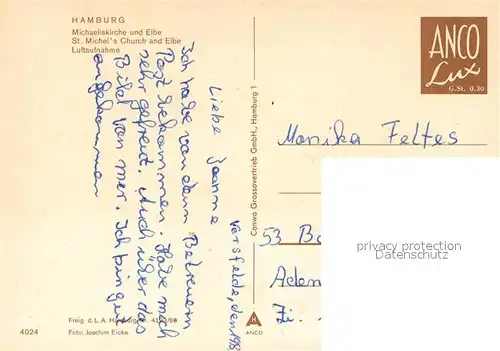 HAMBURG
Michaeliskirche und Elbe
St. Michel's Church and Elbe
Luftaufnahme
ANCO
Lux
G.St. 0.30
Conwa Grossovertrieb GmbH., Hamburg 1
Versfelde, den 198
Liebe Joanne
Ich habe von dem Betreuern
Post bekommen. Habe mich
sehr gefreut. Auch über das
Bild von mer. Ich bin gut
angekommen
Monika Feltes
53
Aden
Zi.
privacy protection
AnsichtskartenVersand.com
Freig. d. L. A.
4024
Foto: Joachim Eicke
ANCO